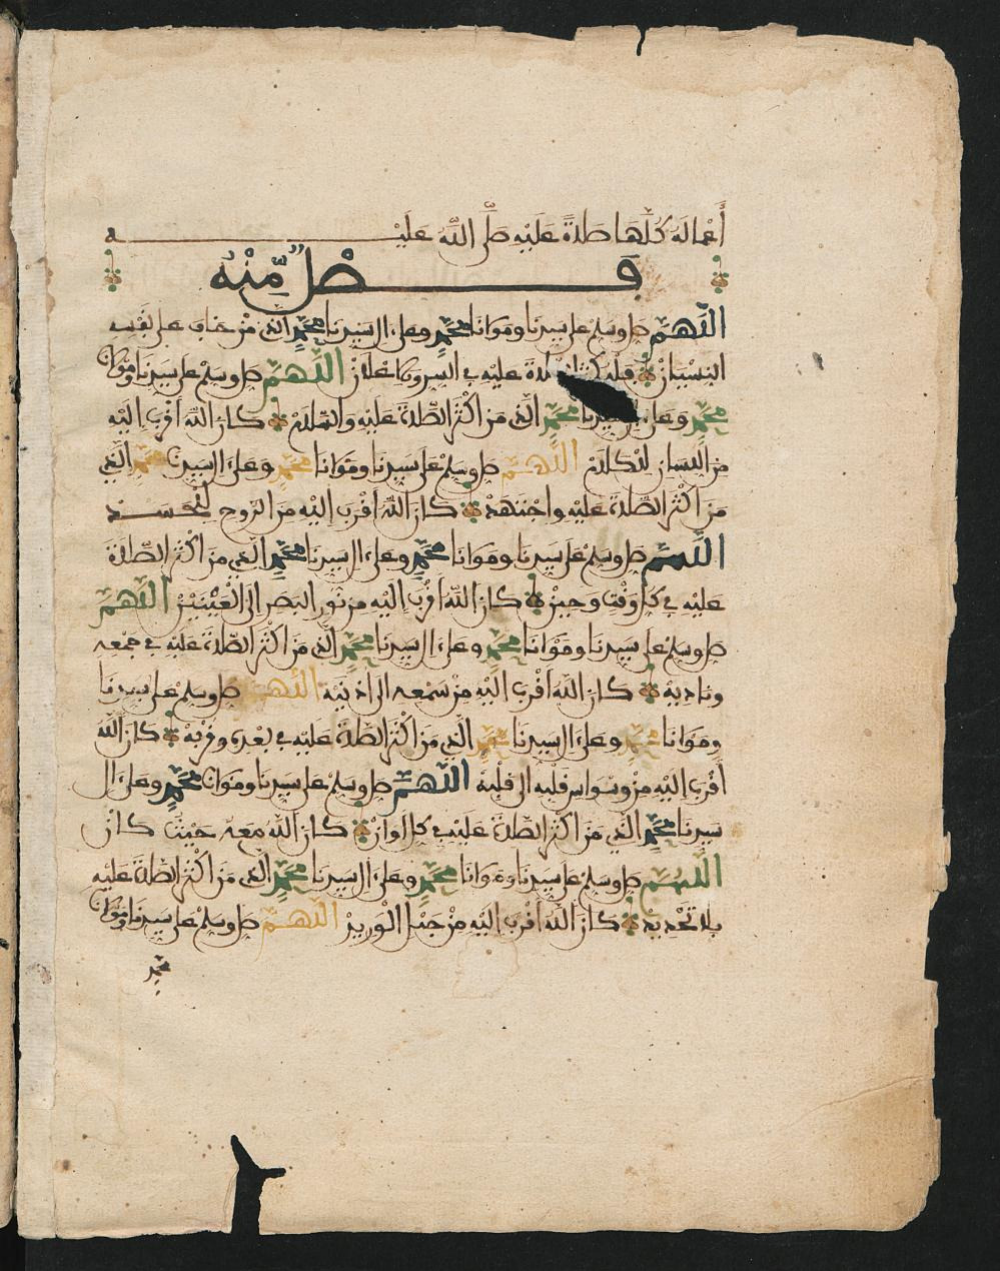 أعماله كلها صلاة عليه صلى الله عليه
فصل منه
اللهم صل وسلم على سيدنا ومولانا محمد وعلى ءال سيدنا محمد الذي من خاف على نفسه
النسيان فليكثر الصلاة عليه في السر والاعلان اللهم صل وسلم على سيدنا ومولانا
محمد وعلى ءال سيدنا محمد الذي من اكثر الصلاة عليه والسلام كان الله أقرب إليه
من اللسان للكلام اللهم صل وسلم على سيدنا ومولانا محمد وعلى ءال سيدنا محمد الذي
من اكثر الصلاة عليه واجتهد كان الله أقرب إليه من الروح للجسد
اللهم صل وسلم على سيدنا ومولانا محمد وعلى ءال سيدنا محمد الذي من اكثر الصلاة
عليه في كل وقت وحين كان الله أقرب إليه من نور البصر إلى العينين اللهم
صل وسلم على سيدنا ومولانا محمد وعلى ءال سيدنا محمد الذي من اكثر الصلاة عليه في جمعه
وناديه كان الله أقرب إليه من سمعه الى اذنيه اللهم صل وسلم على سيدنا
ومولانا محمد وعلى ءال سيدنا محمد الذي من اكثر الصلاة عليه في بعده وقربه كان الله
أقرب إليه من وسواس قلبه الى قلبه اللهم صل وسلم على سيدنا ومولانا محمد وعلى ءال
سيدنا محمد الذي من اكثر الصلاة عليه في كل أوان كان الله معه حيث كان
اللهم صل وسلم على سيدنا ومولانا محمد وعلى ءال سيدنا محمد الذي من اكثر الصلاة عليه
بلا تحديد كان الله أقرب إليه من حبل الوريد اللهم صل وسلم على سيدنا ومولانا
محمد